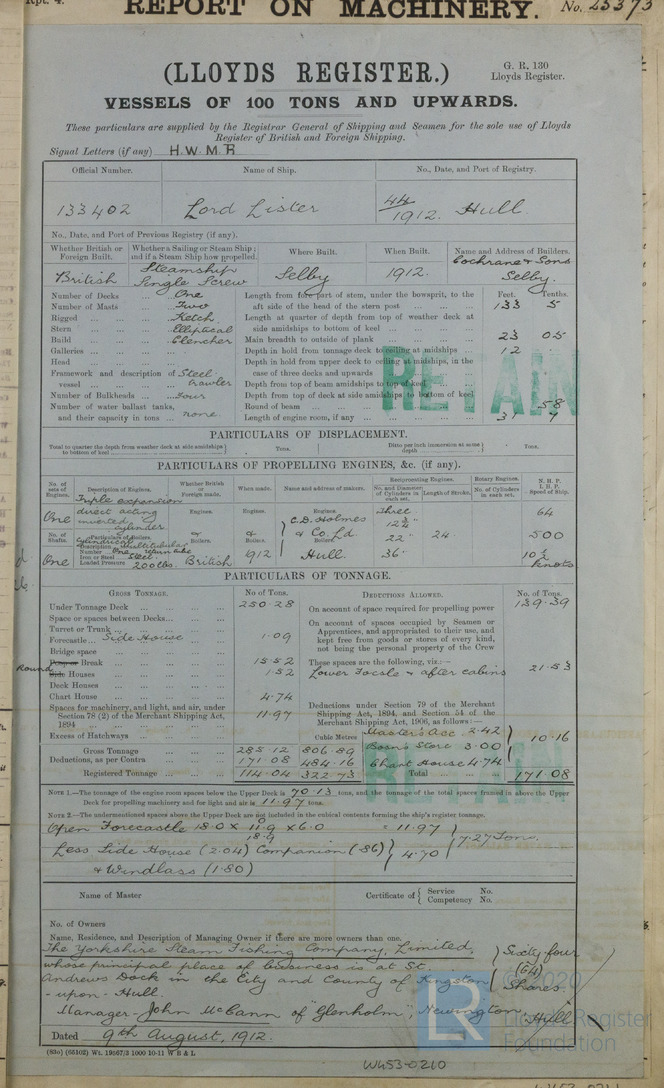 Rpt. 4.
REPORT ON MACHINERY. No. 25373
(LLOYDS REGISTER.)
G. R. 130
Lloyds Register.
VESSELS OF 100 TONS AND UPWARDS.
These particulars are supplied by the Registrar General of Shipping and Seamen for the sole use of Lloyds
Register of British and Foreign Shipping.
Signal Letters (if any) H.W.M.R
Official Number. Name of Ship. No., Date, and Port of Registry.
133402 Lord Lister 44/1912. Hull.
No., Date, and Port of Previous Registry (if any).
Whether British or Foreign Built. Whether a Sailing or Steam Ship; and if a Steam Ship how propelled. Where Built. When Built. Name and Address of Builders.
British Steamship Single Screw Selby 1912. Cochrane & Sons Selby.
Number of Decks ... One
Number of Masts ... Two
Rigged ... Ketch
Stern ... Elliptical
Build ... Clencher
Galleries ...
Head ...
Framework and description of vessel ... Steel trawler
Number of Bulkheads ... Four
Number of water ballast tanks, and their capacity in tons ... none.
Feet. Tenths.
Length from fore part of stem, under the bowsprit, to the aft side of the head of the stern post ... 133 5
Length at quarter of depth from top of weather deck at side amidships to bottom of keel ...
Main breadth to outside of plank ... 23 05
Depth in hold from tonnage deck to ceiling at midships ... 12
Depth in hold from upper deck to ceiling at midships, in the case of three decks and upwards
Depth from top of beam amidships to top of keel
Depth from top of deck at side amidships to bottom of keel
Round of beam ... 58
Length of engine room, if any ... 37 9
RETAIN
PARTICULARS OF DISPLACEMENT.
Total to quarter the depth from weather deck at side amidships to bottom of keel ... Tons. Ditto per inch immersion at same depth Tons.
PARTICULARS OF PROPELLING ENGINES, &c. (if any).
No. of sets of Engines. Description of Engines. Whether British or Foreign made. When made. Name and address of makers. Reciprocating Engines. Rotary Engines. N. H. P.
No. and Diameter of Cylinders in each set. Length of Stroke. No. of Cylinders in each set. I. H. P. Speed of Ship.
One Triple expansion direct acting inverted cylinder Engines. Engines. Engines. Three 64
12½"
No. of Shafts. Particulars of Boilers. or Boilers. of Boilers. C.D. Holmes & Co. Ld Boilers 22" 24" 500
Description Cylindrical Multitubular
Number One return tube
Iron or Steel Steel
One Loaded Pressure 200 lbs. British 1912 Hull. 36" 10½ knots
PARTICULARS OF TONNAGE.
GROSS TONNAGE. No of Tons. DEDUCTIONS ALLOWED. No. of Tons.
Under Tonnage Deck ... 250.28
Space or spaces between Decks ...
Turret or Trunk ...
Forecastle ... Side House 1.09
Bridge space
Poop or Break ... 15.52
Round Side Houses ... 1.52
Deck Houses
Chart House ... 4.74
Spaces for machinery, and light, and air, under Section 78 (2) of the Merchant Shipping Act, 1894 ... 11.97
Excess of Hatchways ... Cubic Metres
Gross Tonnage ... 285.12 806.89
Deductions, as per Contra ... 171.08 484.16
Registered Tonnage ... 114.04 322.73
On account of space required for propelling power 139.39
On account of spaces occupied by Seamen or Apprentices, and appropriated to their use, and kept free from goods or stores of every kind, not being the personal property of the Crew
These spaces are the following, viz.:—
Lower Focsle & after cabins 21.53
Deductions under Section 79 of the Merchant Shipping Act, 1894, and Section 54 of the Merchant Shipping Act, 1906, as follows:—
Master's Acc. 2.42
Bosn's Store 3.00 10.16
Chart House 4.74
Total ... 171.08
RETAIN
NOTE 1.—The tonnage of the engine room spaces below the Upper Deck is 70.13 tons, and the tonnage of the total spaces framed in above the Upper
Deck for propelling machinery and for light and air is 11.97 tons.
NOTE 2.—The undermentioned spaces above the Upper Deck are not included in the cubical contents forming the ship's register tonnage.
Open Forecastle 18.0 X 11.9 X 6.0 = 11.97
18.9 7.27 Tons.
Less Side House (2.04) Companion (.86) 4.70
& Windlass (1.80)
Name of Master Certificate of Service No.
Competency No.
No. of Owners
Name, Residence, and Description of Managing Owner if there are more owners than one.
The Yorkshire Steam Fishing Company, Limited, Sixty four
whose principal place of business is at St. (64)
Andrews Dock in the City and County of Kingston Shares
-upon-Hull.
Manager - John McCann of "Glenholm", Newington, Hull
Dated 9th August, 1912.
(83o) (65102) Wt. 19167/3 1000 10-11 W B & L
© 2020
LR
Lloyd's Register
Foundation
W453-0210